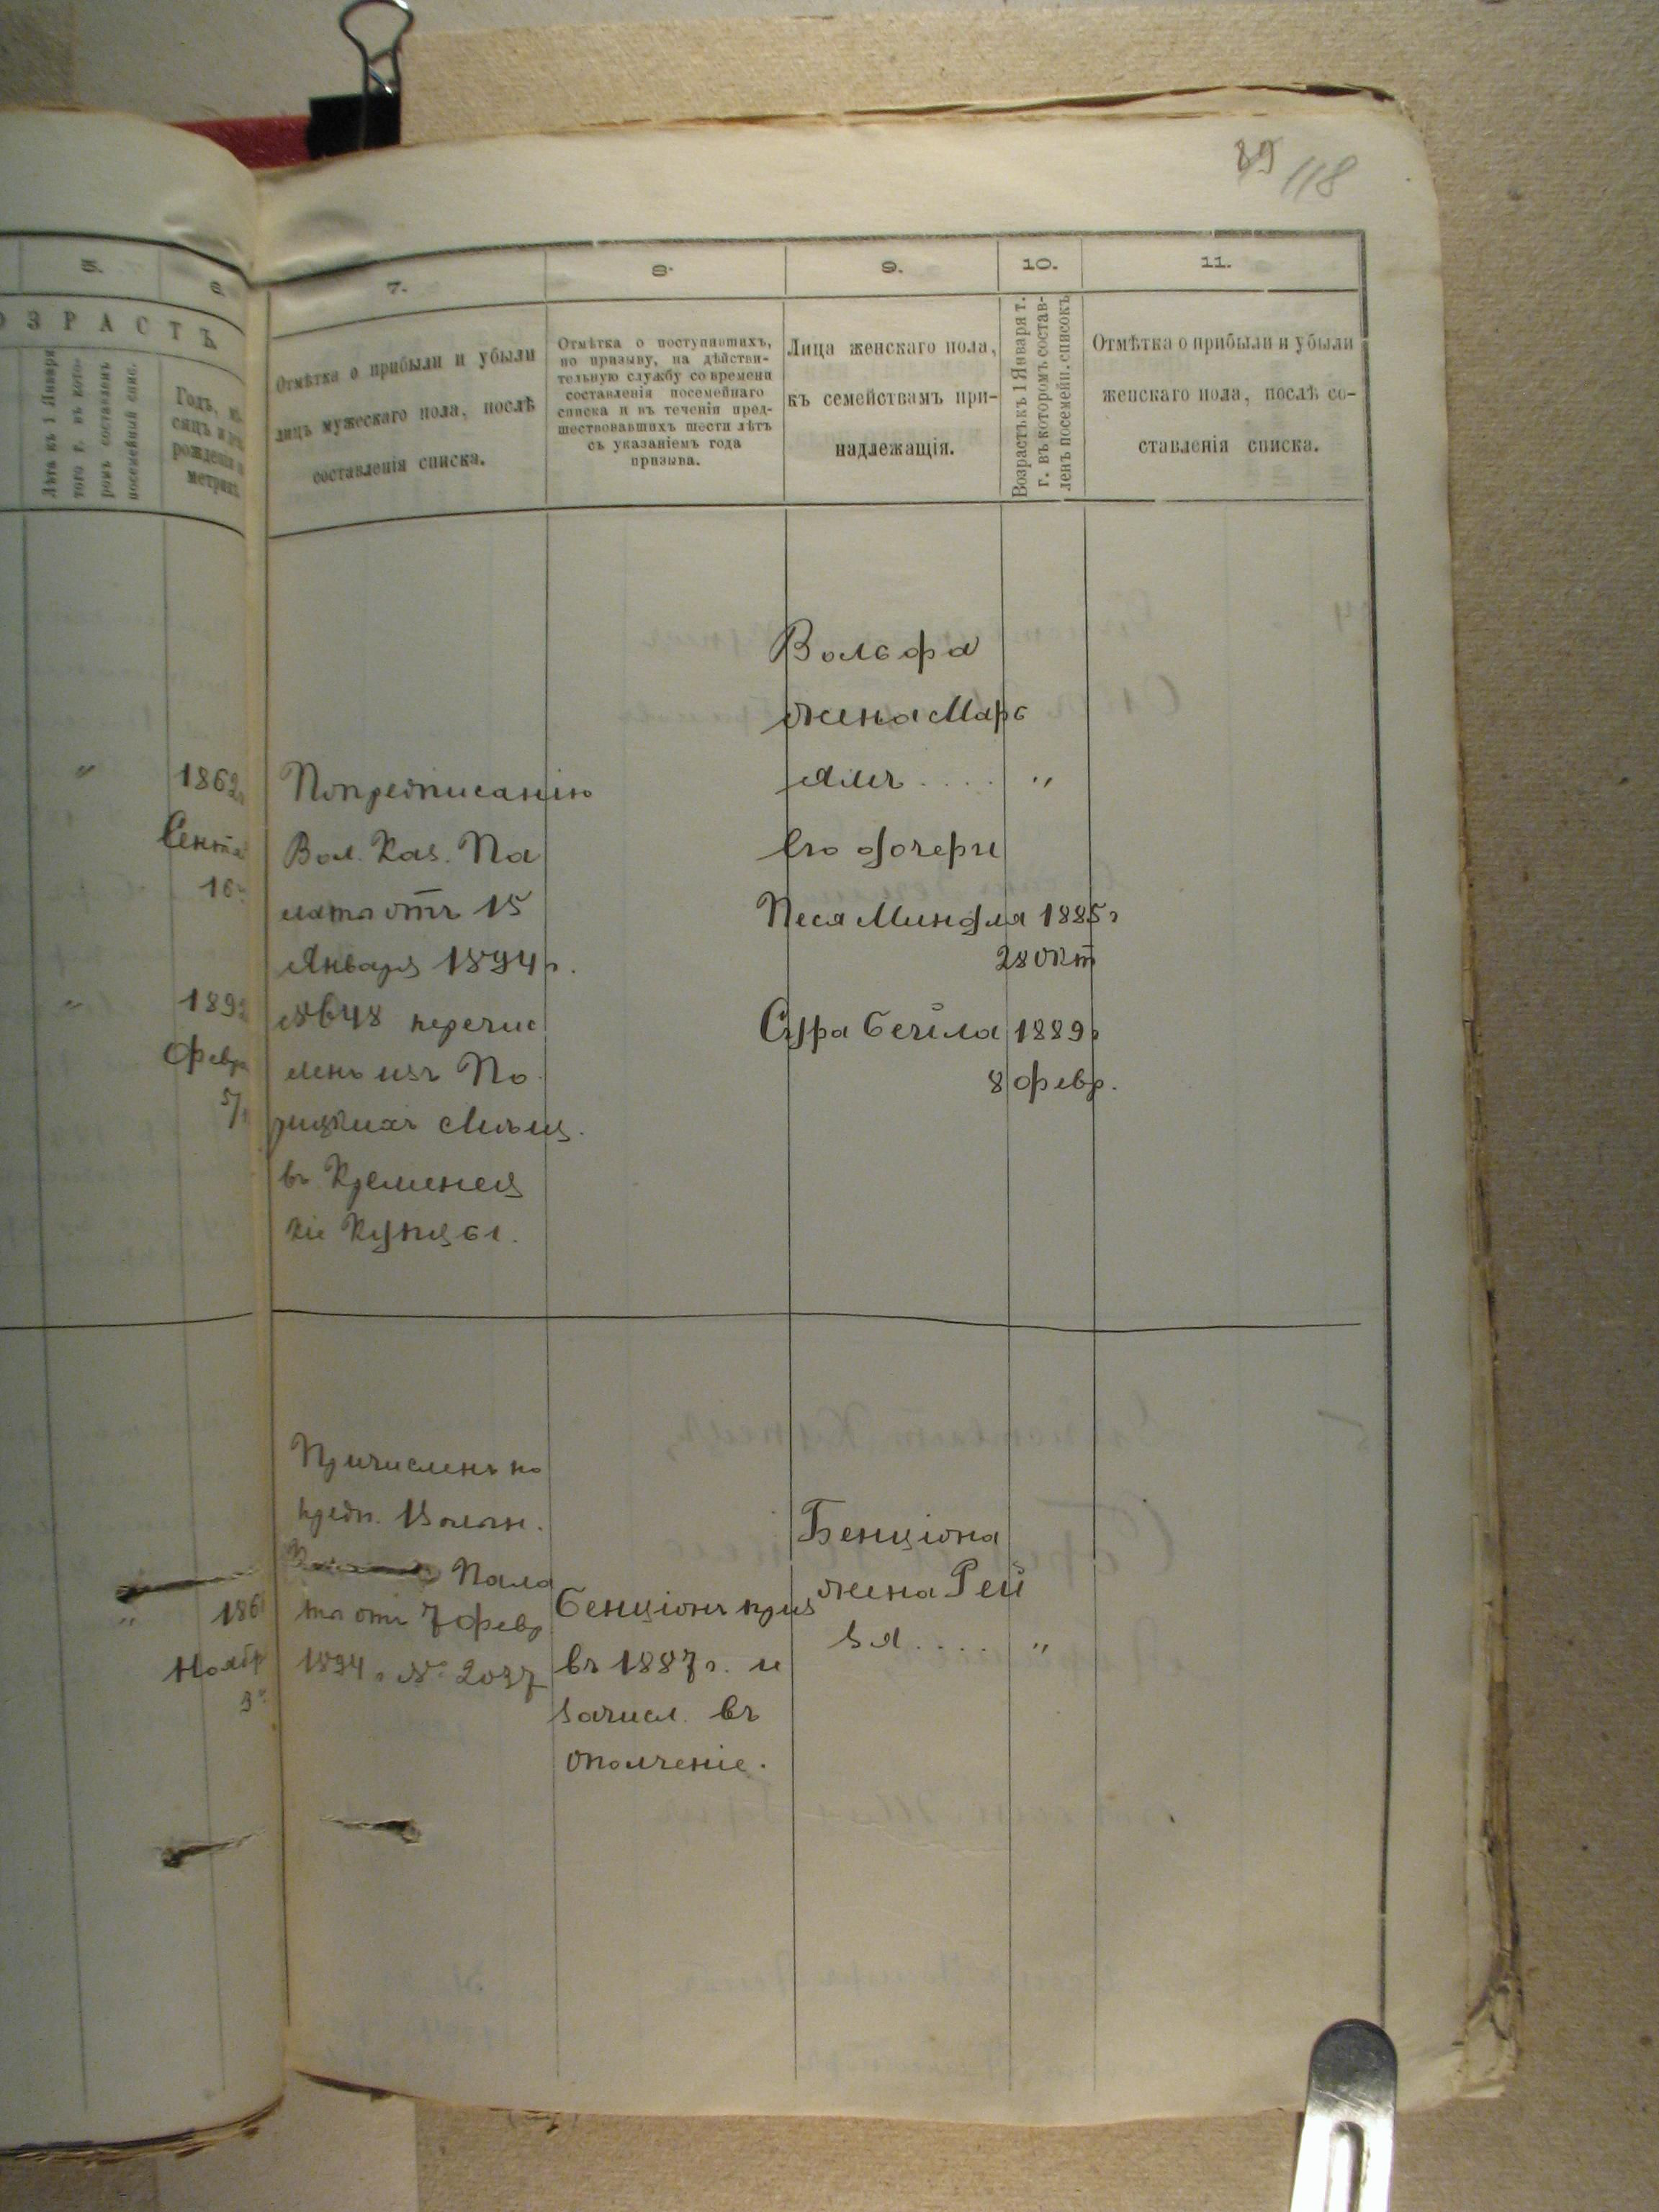 89 118
5. 6. 7. 8. 9. 10. 11.
ОЗРАСТЪ.
Лѣта къ 1 Января
того г. въ кото-
ромъ составленъ
посемейный спис.
Годъ, мѣ-
сяцъ и
рожденія
метрик.
Отмѣтка о прибыли и убыли
лицъ мужескаго пола, послѣ
составленія списка.
Отмѣтка о поступившихъ,
по призыву, на дѣйстви-
тельную службу со времени
составленія посемейнаго
списка и въ теченіи пред-
шествовавшихъ шести лѣтъ
съ указаніемъ года
призыва.
Лица женскаго пола,
къ семействамъ при-
надлежащія.
Возрастъ къ 1 Января т.
г. въ которомъ состав-
ленъ посемейн. списокъ
Отмѣтка о прибыли и убыли
женскаго пола, послѣ со-
ставленія списка.
" 1862
Сентя
16
" 1892
Февр
5/
По предписанію
Вол. Каз. Па
латы отъ 15
Января 1894 г.
№ 648 перечис
ленъ изъ По
рицкихъ Мѣщ.
въ Кременец
кіе Купцы.
Вольфа
жена Марь
ямъ .... "
Его дочери
Песя Миндля 1885 г
28 Окт
Сура Бейла 1889 г
8 февр.
" 186
Ноябр
3
Причисленъ по
предп. Волын.
Пала
ты отъ 7 февр
1894 г № 2037
Бенціонъ приз
въ 1887 г. и
зачисл. въ
ополченіе.
Бенціона
жена Рей
зя .... "